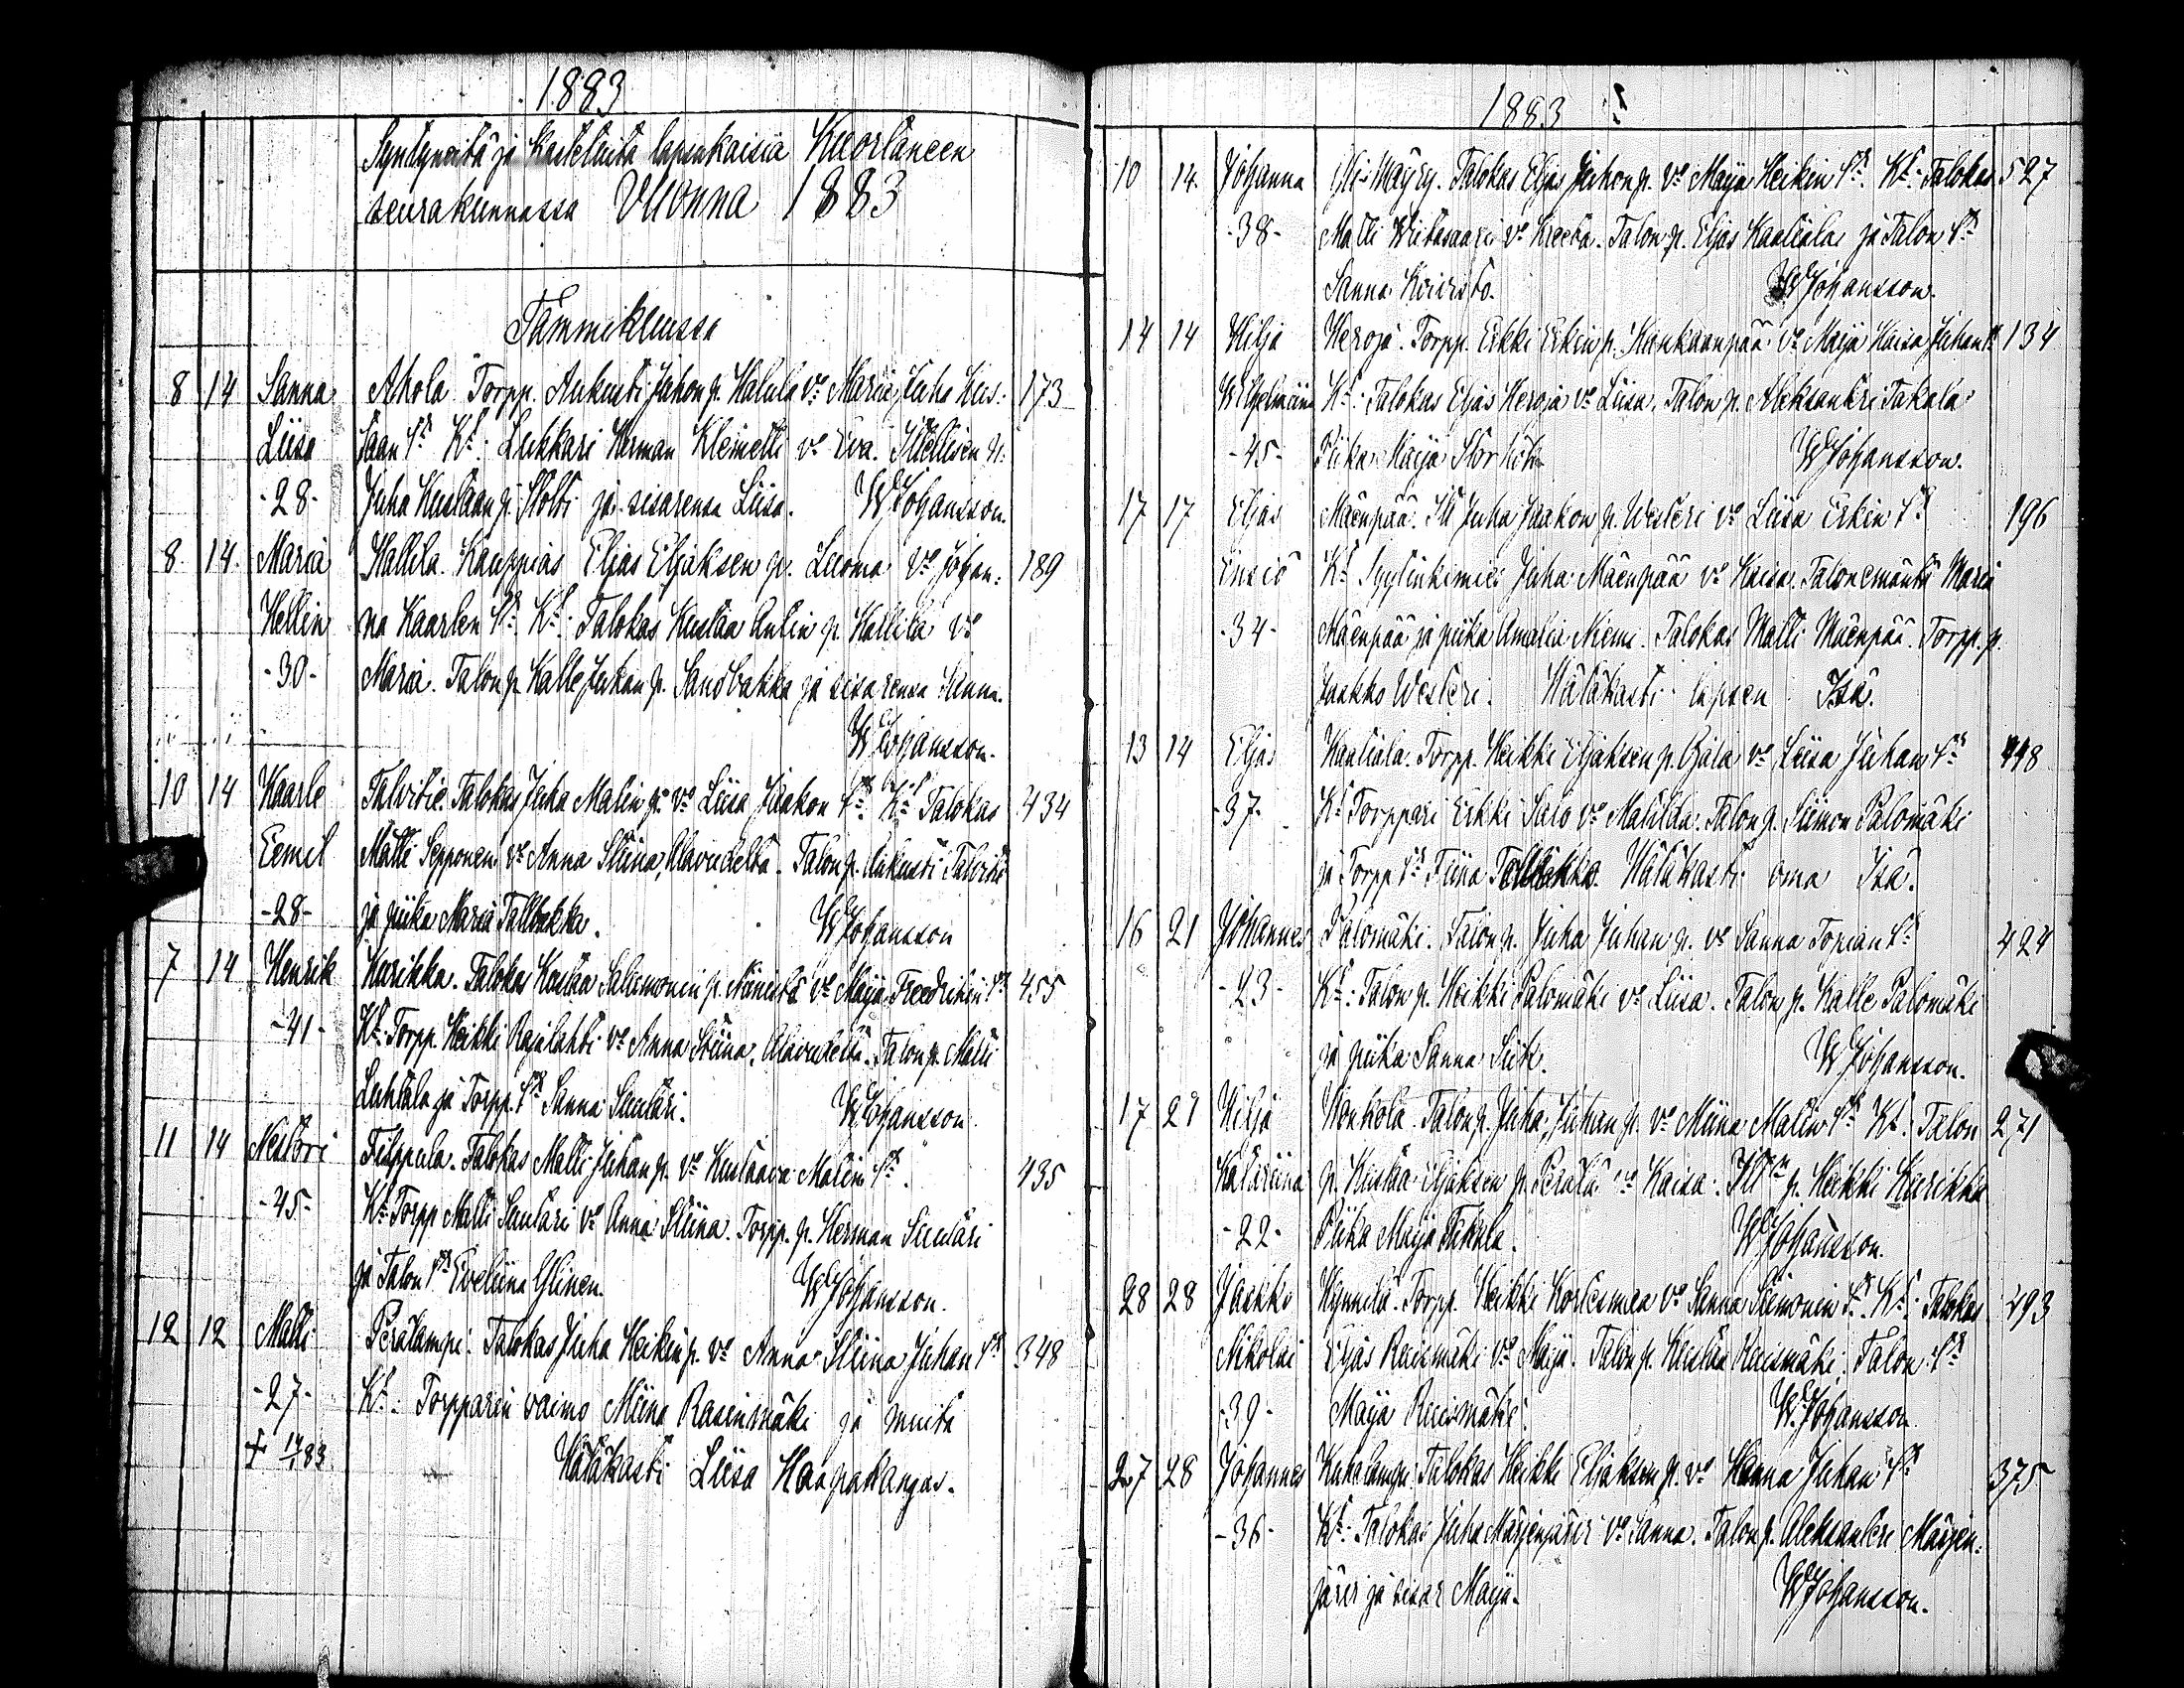 1883
Syntyneitä ja Kastetuita lapsukaisia Kuortaneen
seurakunnassa Vuonna 1883
Tammikuussa
8 14 Sanna Ahola Torpp. Aukusti Juhon p. Halula vo Maria, Juha Kus= 173
Liisa taan tr Kt: Lukkari Herman Klemetti vo Eva. Itellisen p.
-28- Juha Kustaan p. Stolti ja sisarensa Liisa. W Johansson.
8. 14. Maria Hallila. Kauppias Eljas Eljaksen p. Luoma vo Johan= 189
Hellin na Kaarlen tr. Kt: Talokas Kustaa Antin p. Hallila vo
-30- Maria. Talon p. Kalle Juhan p. Sandbakka ja sisarensa Sanna.
W Johansson.
10 14 Kaarle Talvitie. Talokas Juha Matin p. vo Liisa Jaakon tr. Kt: Talokas 434
Eemil Matti Sepponen vo Anna Stiina, Alavudelta. Talon p. Aukusti Talvitie
-28- ja piika Maria Tallbakka. W Johansson
7 14 Henrik Kurikka. Talokas Kustaa Salomonin p. Niinistö vo Maija Fredrikin tr. 455
-41- Kt: Torpp. Heikki Rajalahti vo Anna Stiina, Alavudelta. Talon p. Matti
Luhtala ja Torpp. tr Sanna Suutari. W Johansson.
11 14 Nestori Filppula. Talokas Matti Juhan p. vo Kustaava Matin tr. 435
-45- Kt: Torpp Matti Suutari vo Anna Stiina. Torpp. p. Herman Suutari
ja Talon tr Eveliina Ylinen. W Johansson.
12 12 Matti Perälampi. Talokas Juha Heikin p. vo Anna Stiina Juhan tr 348
-27- Kt: Torpparin vaimo Miina Rasinmäki ja muita
+ 14/1 83. Hätäkasti Liisa Haapakangas.
1883
10 14. Johanna Yli-Mäyry. Talokas Eljas Juhon p. vo Maija Heikin tr. Kt: Talokas 527
-38- Matti Wiitasaari vo Kreeta. Talon p. Eljas Kaatiala ja Talon tr
Sanna Koivisto. W Johansson.
14 14 Hilja Heroja. Torpp. Erkki Erkin p. Kankaanpää vo Maija Kaisa Juhan tr 134
Wilhelmiina Kt: Talokas Eljas Heroja vo Liisa. Talon p. Aleksanteri Takala
-45- Piika Maija W Johansson.
17 17 Eljas Mäenpää. Itl Juha Jaakon p. Westeri vo Liisa Erkin tr 196
Ensiö Kt: Syytinkimies Juha Mäenpää vo Kaisa. Talonemäntä Maria
-34- Mäenpää ja piika Amalia Niemi. Talokas Matti Mäenpää. Torpp. p.
Jaakko Westeri. Hätäkasti lapsen Isä.
13 14 Eljas Kaatiala. Torpp. Heikki Eljaksen p. Ojala vo Liisa Juhan tr 448
-37- Kt: Torppari Erkki Salo vo Matilda. Talon p. Siimon Palomäki
ja Torpp tr Fiina Tallbakka. Hätäkasti oma Isä.
16 21 Johannes Palomäki. Talon p. Juha Juhan p. vo Sanna Topian tr 424
-23- Kt: Talon p. Heikki Palomäki vo Liisa. Talon p. Kalle Palomäki
ja piika Sanna Siik. W Johansson.
17 21 Hilja Honkola. Talon p. Juha Juhan p. vo Miina Matin tr Kt: Talon 271
Katariina p. Kustaa Eljaksen p. Perälä vo Kaisa. Itl p. Heikki Kurikka
-22- Piika Maija Takala. W Johansson.
28 28 Jaakko Hynnilä. Torpp. Heikki Kortesmaa vo Sanna Siimonin tr. Kt: Talokas 293
Nikolai Eljas Ruismäki vo Maija. Talon p. Kustaa Ruismäki. Talon tr
-39- Maija Ruismäki. W. Johansson.
27 28 Johannes Kuhalampi. Talokas Heikki Eljaksen p. vo Hanna Juhan tr 375
-36- Kt: Talokas Juha Märjenjärvi vo Sanna. Talon p. Aleksanteri Märjen=
järvi ja sisar Maija. W Johansson.